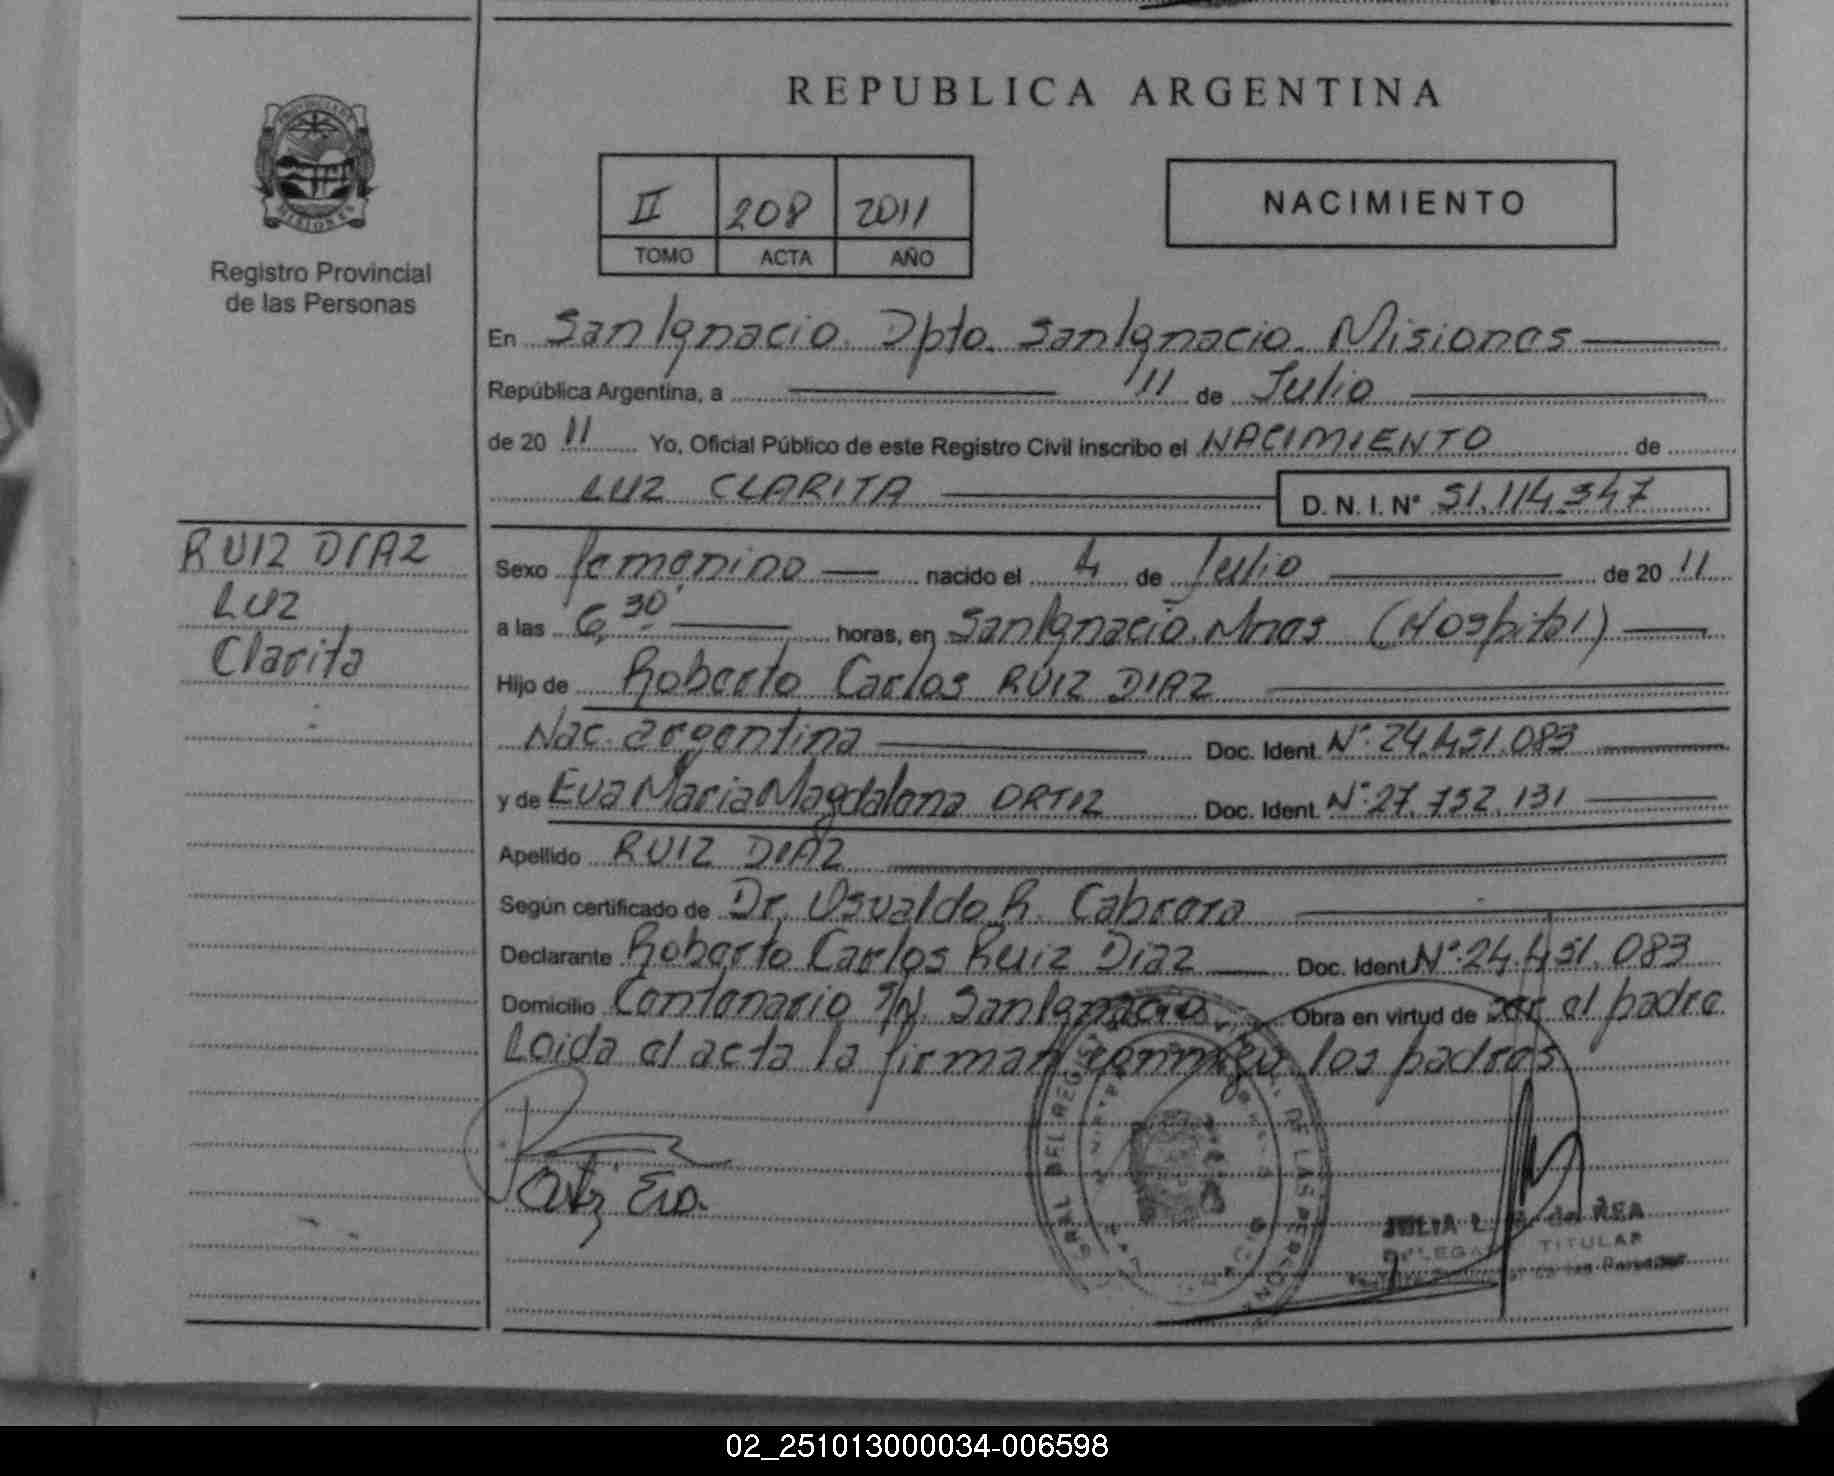 REPUBLICA ARGENTINA
PROVINCIA DE
MISIONES
Registro Provincial
de las Personas
II 208 2011
TOMO ACTA AÑO
NACIMIENTO
En San Ignacio. Dpto. San Ignacio. Misiones
República Argentina, a 11 de Julio
de 20 11 Yo, Oficial Público de este Registro Civil inscribo el NACIMIENTO de
LUZ CLARITA D. N. I. N° 51.114.347
RUIZ DIAZ
Luz
Clarita
Sexo femenino nacido el 4 de Julio de 20 11
a las 6,30' horas, en San Ignacio. Mnes (Hospital)
Hijo de Roberto Carlos RUIZ DIAZ
Nac. argentina Doc. Ident. N°. 24.451.083
y de Eva Maria Magdalena ORTIZ Doc. Ident. N°. 27.732.131
Apellido RUIZ DIAZ
Según certificado de Dr. Osvaldo R. Cabrera
Declarante Roberto Carlos Ruiz Diaz Doc. Ident N°. 24.451.083
Domicilio Centenario S/N. San Ignacio Obra en virtud de ser el padre
Leida el acta la firman conmigo los padres
Ortiz Eva.
JULIA L. de REA
TITULAR
02_251013000034-006598